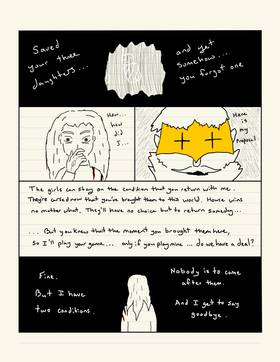 Saved
your three
daughters...
and yet
somehow...
you forgot one
How...
how
did
I...
Here
is
my
proposal
The girls can stay on the condition that you return with me.
They're cursed now that you've brought them to this world. House wins
no matter what. They'll have no choice but to return someday...
... But you knew that the moment you brought them here,
so I'll play your game... only if you play mine ... do we have a deal?
Fine.
But I have
two conditions.
Nobody is to come
after them.
And I get to say
goodbye.